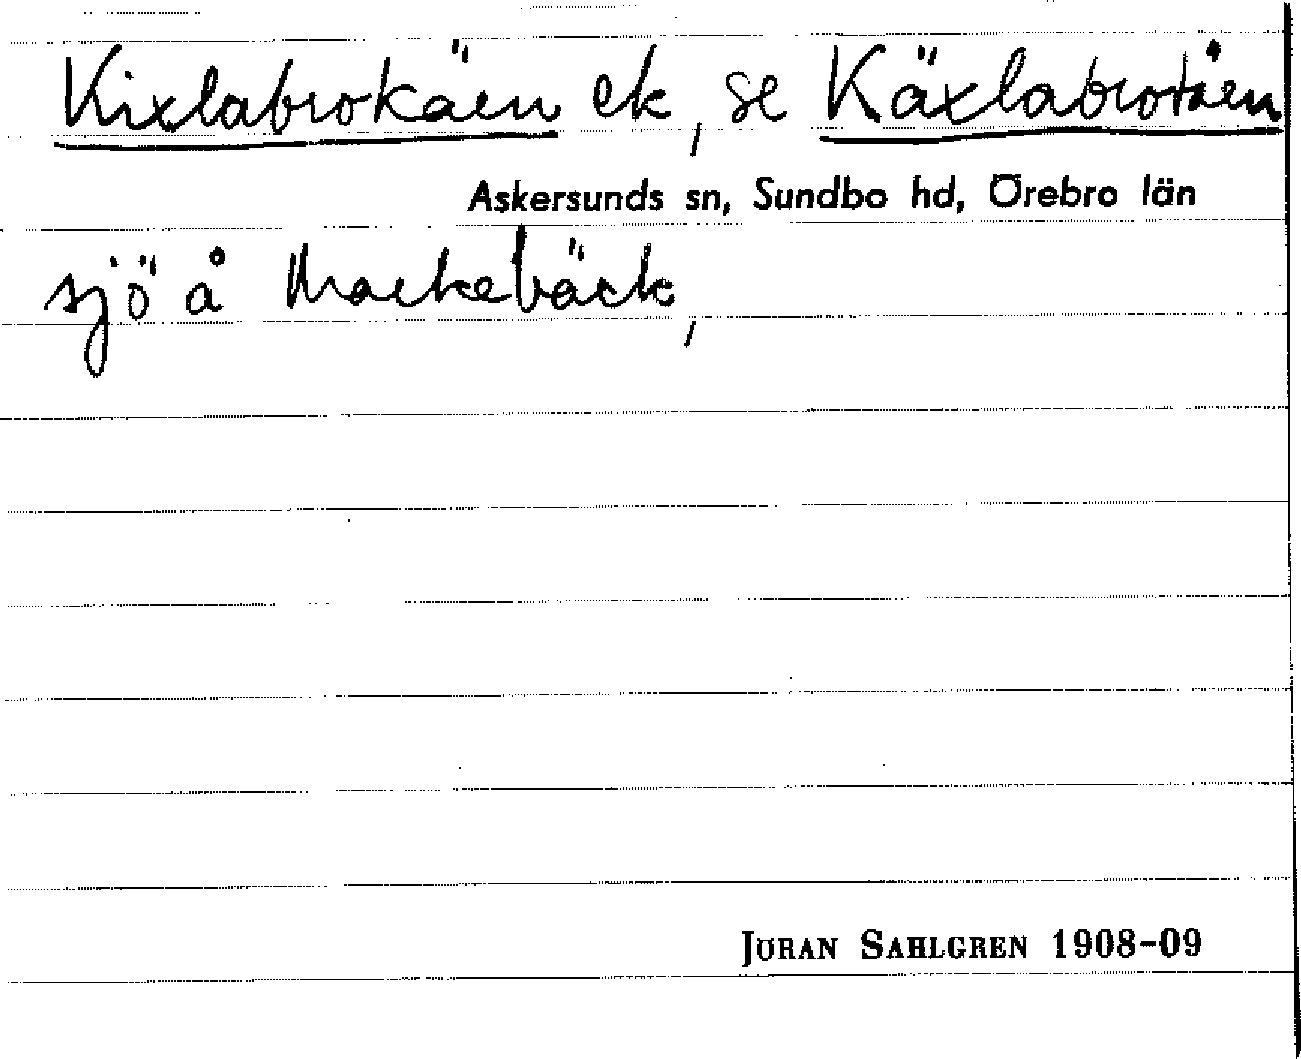 Kixlabrokäen ek, se Käxlabrotåen
Askersunds sn, Sundbo hd, Örebro län
sjö å Mackebäck,
JÖRAN SAHLGREN 1908-09